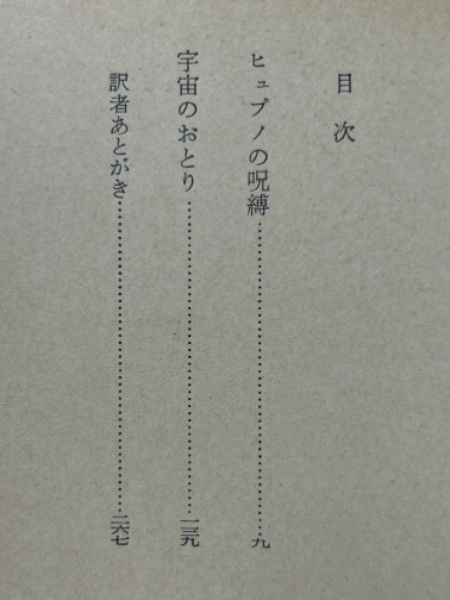 目次
ヒュプノの呪縛……………………………九
宇宙のおとり……………………………一三九
訳者あとがき……………………………二六七